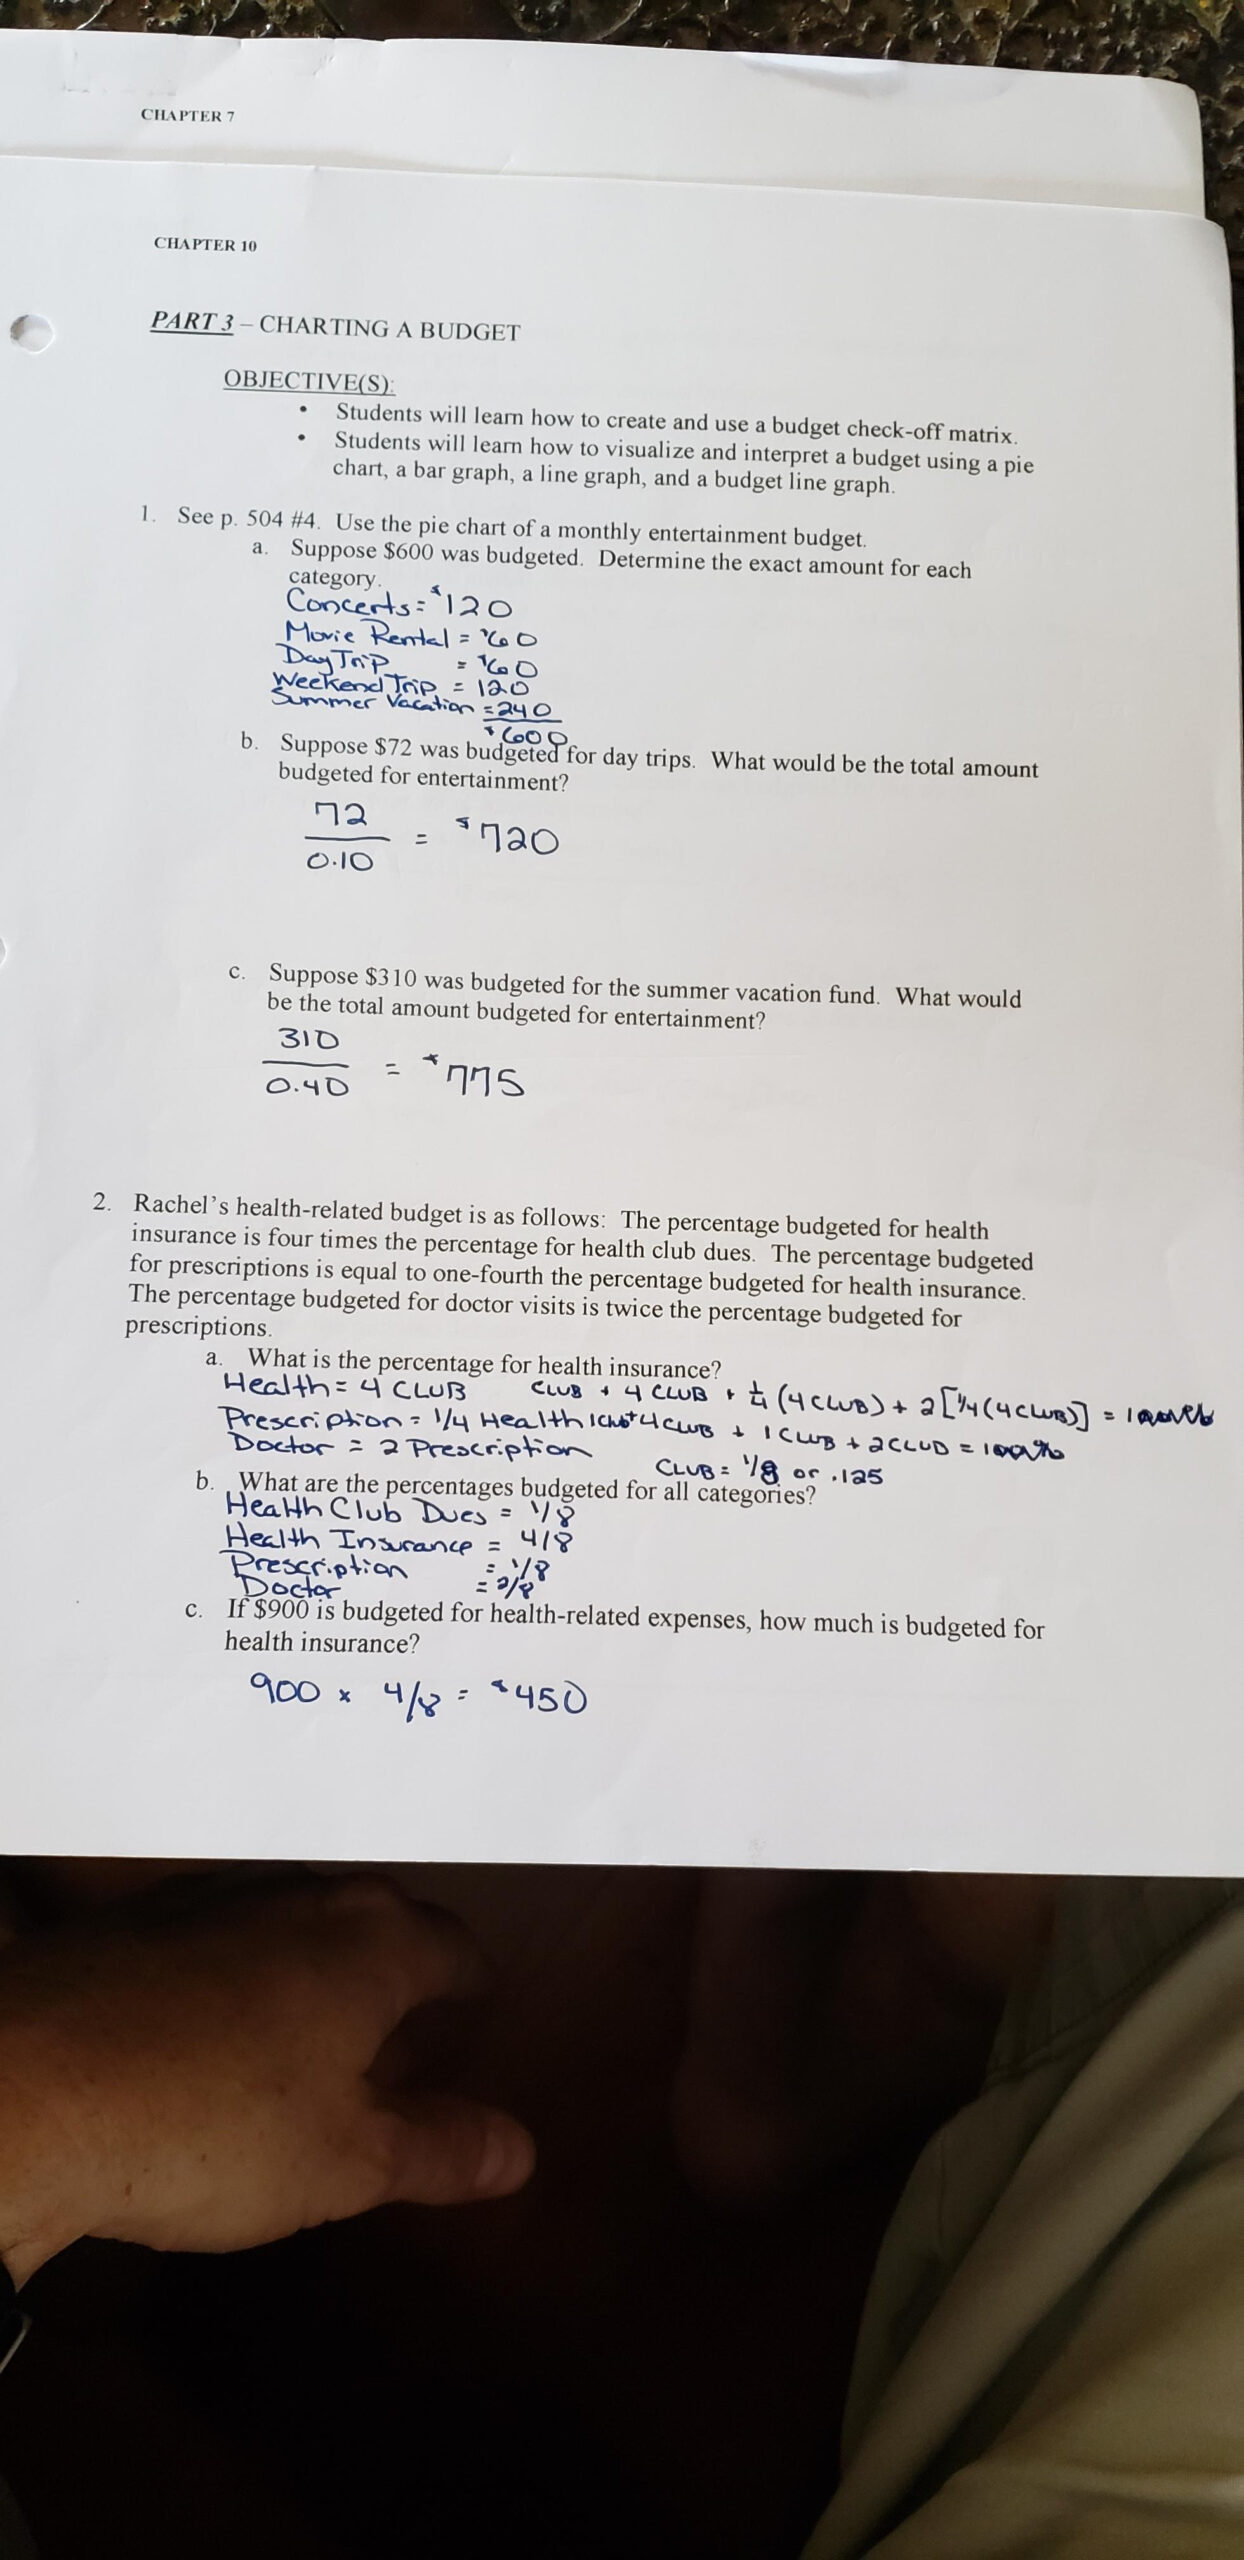 CHAPTER 7
CHAPTER 10
PART 3 – CHARTING A BUDGET
OBJECTIVE(S):
• Students will learn how to create and use a budget check-off matrix.
• Students will learn how to visualize and interpret a budget using a pie
chart, a bar graph, a line graph, and a budget line graph.
1. See p. 504 #4. Use the pie chart of a monthly entertainment budget.
a. Suppose $600 was budgeted. Determine the exact amount for each
category.
Concerts = $120
Movie Rental = $60
Day Trip = $60
Weekend Trip = 120
Summer Vacation = 240
$600
b. Suppose $72 was budgeted for day trips. What would be the total amount
budgeted for entertainment?
72
0.10 = $720
c. Suppose $310 was budgeted for the summer vacation fund. What would
be the total amount budgeted for entertainment?
310
0.40 = $775
2. Rachel's health-related budget is as follows: The percentage budgeted for health
insurance is four times the percentage for health club dues. The percentage budgeted
for prescriptions is equal to one-fourth the percentage budgeted for health insurance.
The percentage budgeted for doctor visits is twice the percentage budgeted for
prescriptions.
a. What is the percentage for health insurance?
Health = 4 CLUB CLUB + 4 CLUB + 1/4 (4 CLUB) + 2 [1/4 (4 CLUB)] =
Prescription = 1/4 Health 1 Club + 4 CLUB + 1 CLUB + 2 CLUB =
Doctor = 2 Prescription
CLUB = 1/8 or .125
b. What are the percentages budgeted for all categories?
Health Club Dues = 1/8
Health Insurance = 4/8
Prescription = 1/8
Doctor = 2/8
c. If $900 is budgeted for health-related expenses, how much is budgeted for
health insurance?
900 x 4/8 = $450